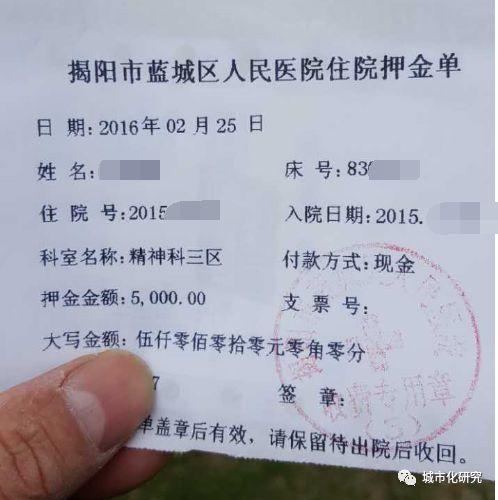 揭阳市蓝城区人民医院住院押金单
日 期:2016年02月25日
姓 名: 床 号:83
住 院 号:2015 入院日期:2015.
科室名称:精神科三区 付款方式:现金
押金金额:5,000.00 支 票 号:
大写金额:伍仟零佰零拾零元零角零分
7 签 章:
收费专用章
单盖章后有效,请保留待出院后收回。
城市化研究